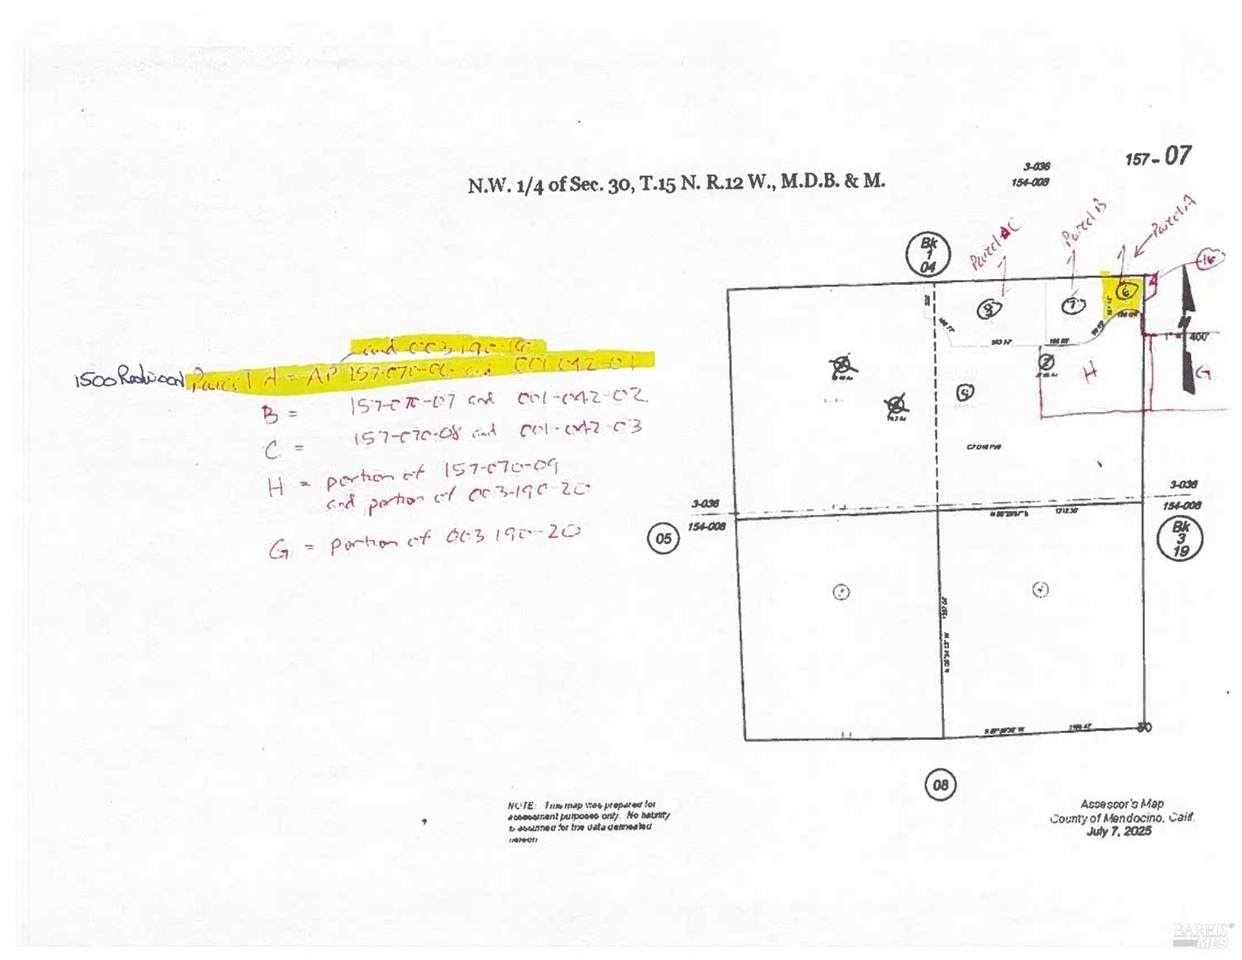 157-07
3-036
154-008
N.W. 1/4 of Sec. 30, T.15 N. R.12 W., M.D.B. & M.
Parcel C
Parcel B
Parcel A
Bk
1
04
8
7
6
400'
and 003-190-
1500 Redwood Parcel A = AP 157-070-06 and 001-042-01
B = 157-070-07 and 001-042-02
C = 157-070-08 and 001-042-03
H = portion of 157-070-09
and portion of 003-190-20
G = portion of 003-190-20
H
G
9
3-036
154-008
3-036
154-008
05
Bk
3
19
1312.50'
30
08
NOTE: This map was prepared for
assessment purposes only. No liability
is assumed for the data delineated
hereon
Assessor's Map
County of Mendocino, Calif.
July 7, 2025
BAREIS®
MLS